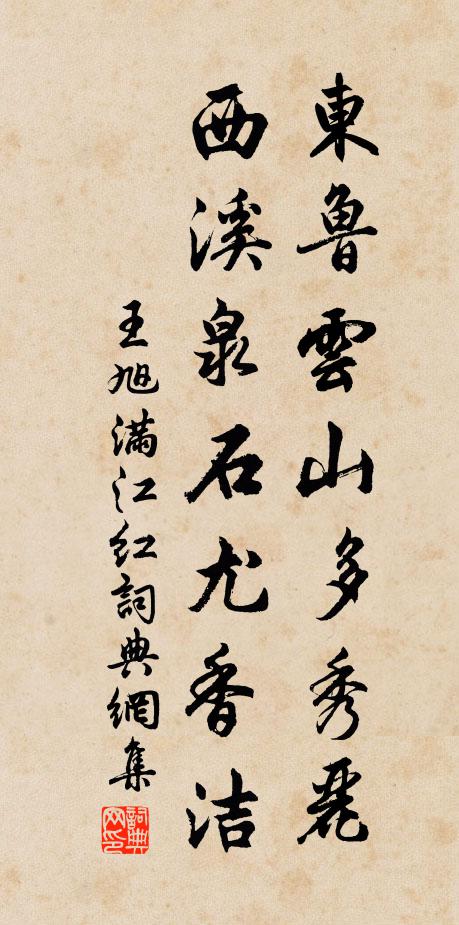 東魯雲山多秀麗
西溪泉石尤香洁
王旭满江红詞典網集
詞典网印